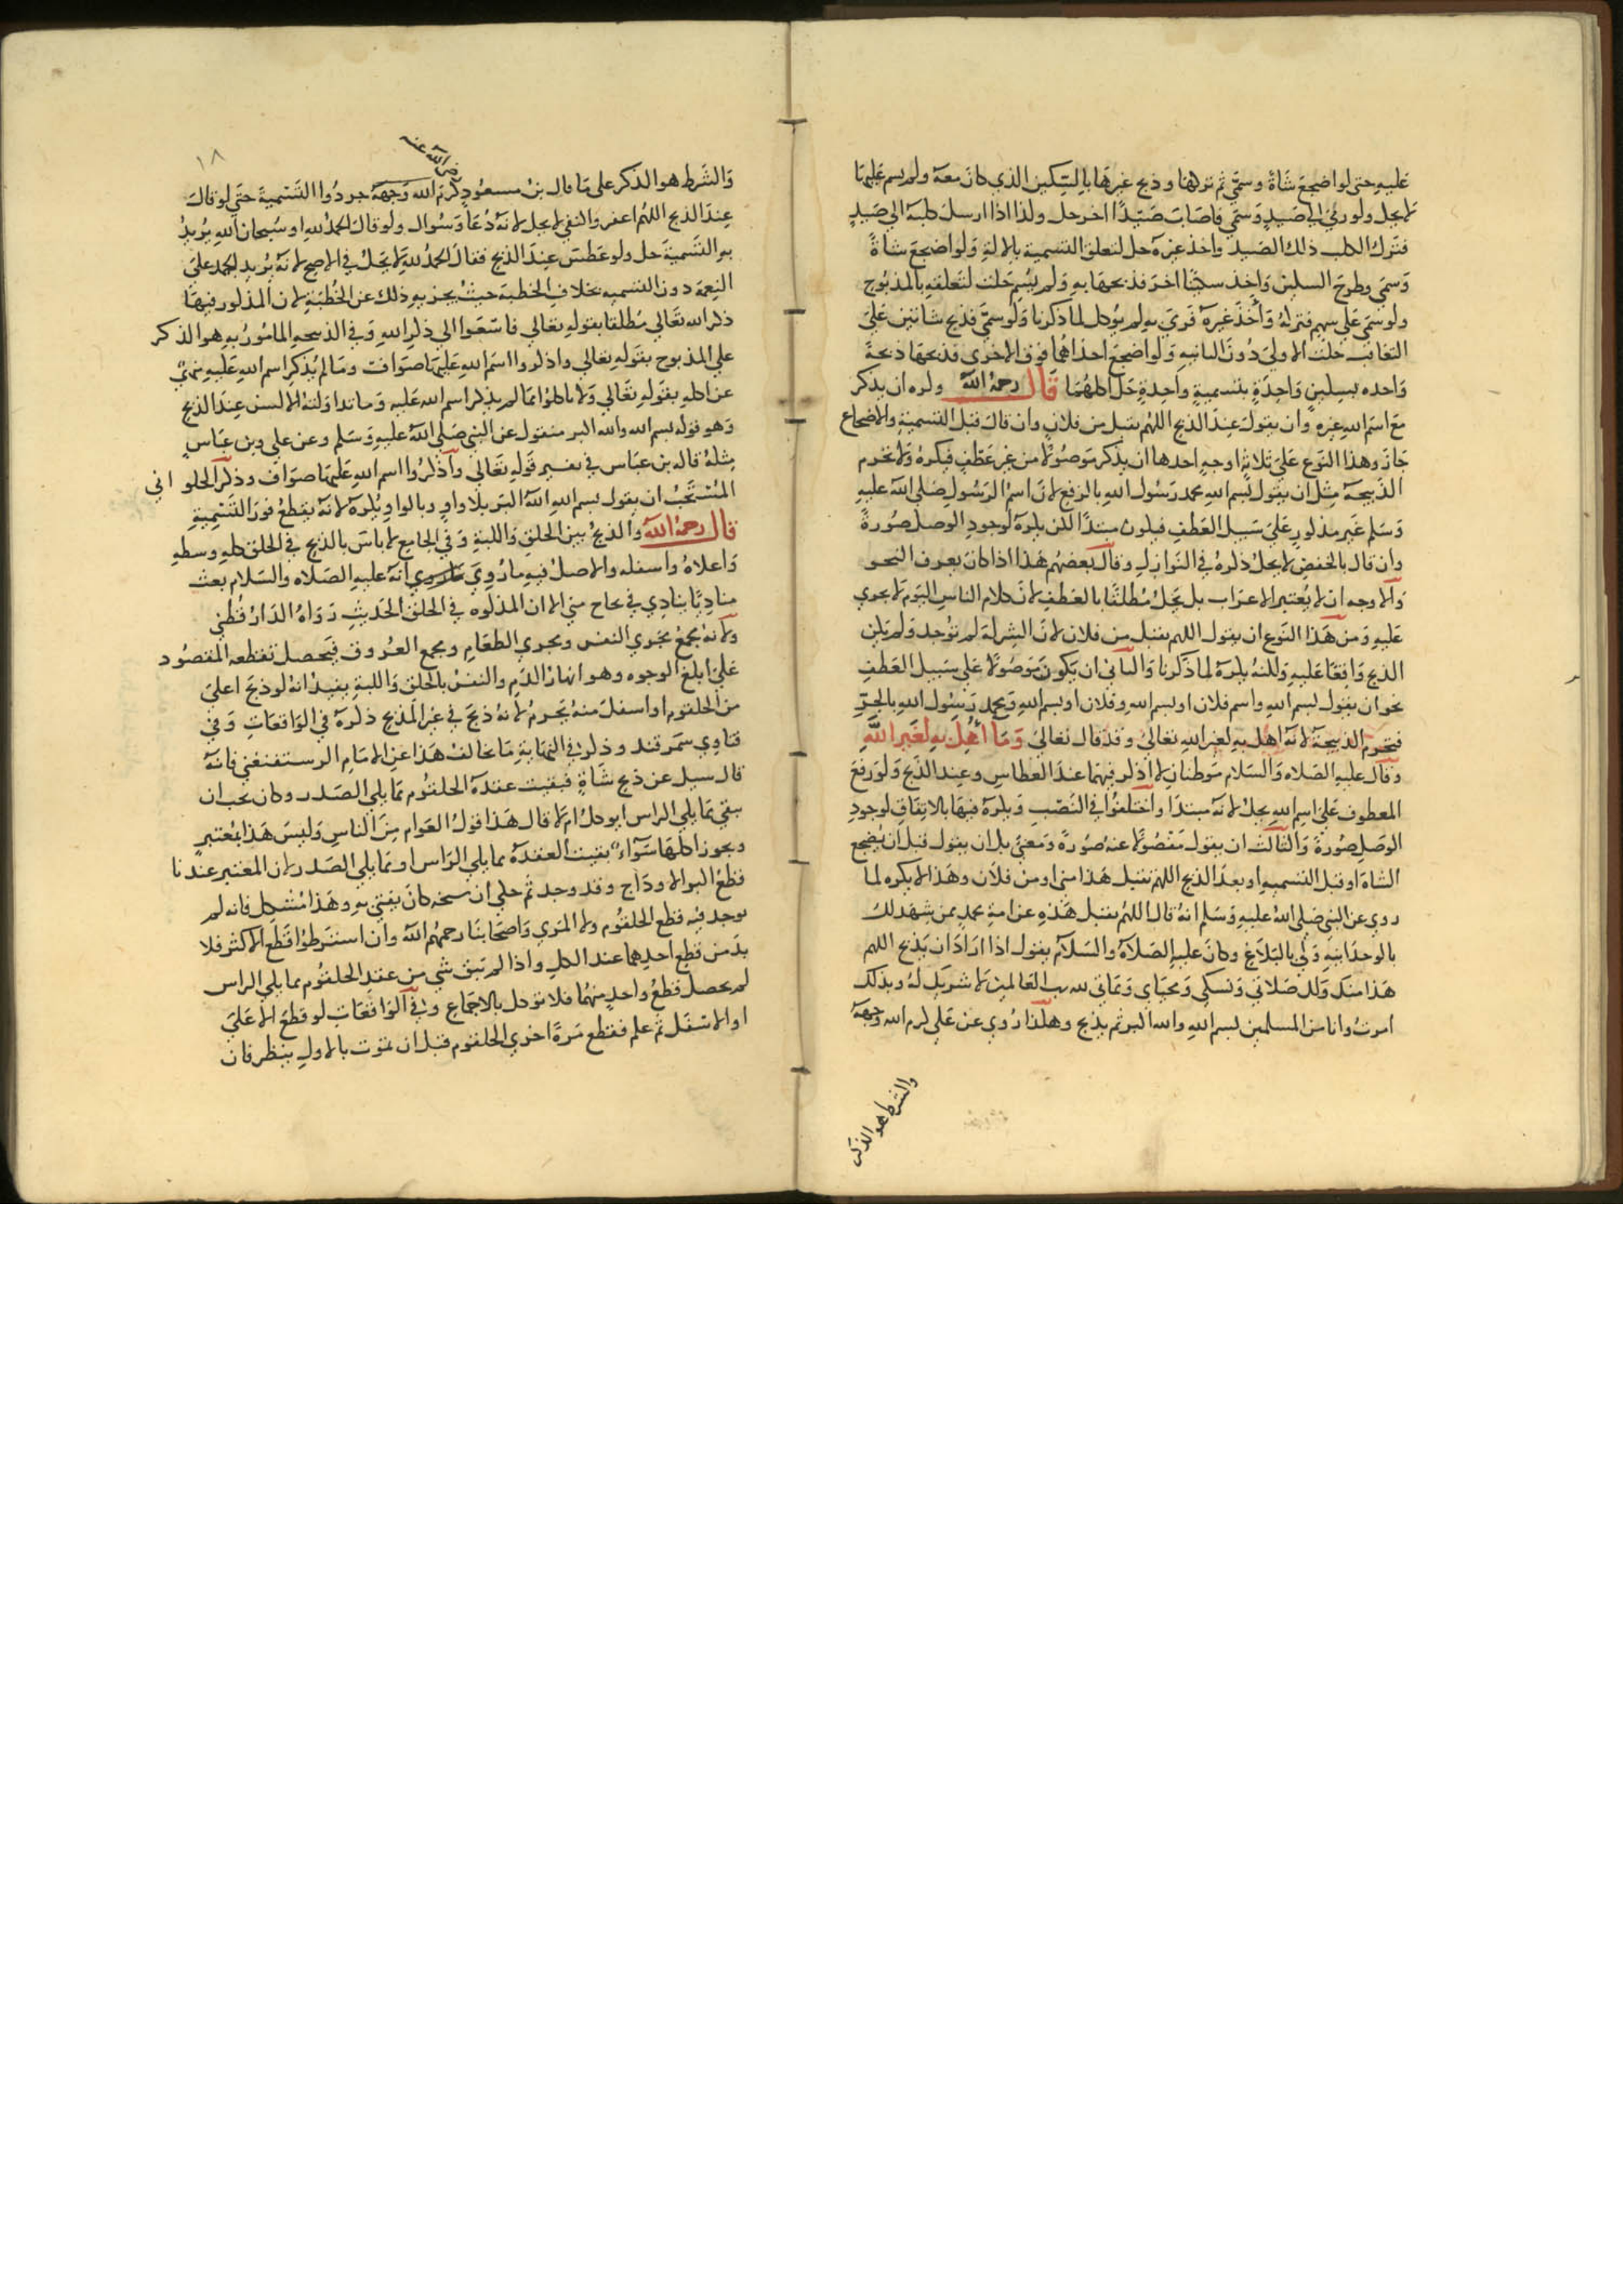 عليه حتى لو اضجع شاة وسمي ثم تركها وذبح غيرها بالسكين الذي كان معه ولم يسم عليها
لا يحل ولو رمي الي صيد وسمي فاصاب صيدا اخر حل ولذا اذا ارسل كلبه الي صيد
فترك الكلب ذلك الصيد واخذ غيره حل لتعلق التسمية بالالة ولو اضجع شاة
وسمي وطرح السكين واخذ سكينا اخر فذبحها به ولم يسم حلت لتعلقه بالمذبوح
ولو سمي علي سهم فتركه واخذ غيره فرمي به لم يوكل لما ذكرنا ولو سمي فذبح شاتين علي
التعاقب حلت الاولي دون الثانيه ولو اضجع احداهما فوق الاخري فذبحها ذبحة
واحده بسكين واحدة بتسمية واحدة حل اكلهما قال رحمه الله وكره ان يذكر
مع اسم الله غيره وان يقول عند الذبح اللهم تقبل من فلان وان قال قبل التسمية والاضجاع
جاز وهذا النوع علي ثلاثة اوجه احدها ان يذكر موصولا من غير عطف فيكره ولا تحرم
الذبيحة مثل ان يقول بسم الله محمد رسول الله بالرفع لان اسم الرسول صلي الله عليه
وسلم غير مذكور علي سبيل العطف فيكون مبتدا لكن يكره لوجود الوصل صورة
وان قال بالخفض لا يحل ذكره في النوازل وقال بعضهم هذا اذا كان يعرف النحو
والاوجه ان لا يعتبر الاعراب بل يحل مطلقا بالعطف لان كلام الناس اليوم لا يجري
عليه ومن هذا النوع ان يقول اللهم تقبل من فلان لان الشركة لم توجد ولم يكن
الذبح واقعا عليه ولكنه يكره لما ذكرنا والثاني ان يكون موصولا علي سبيل العطف
نحو ان يقول بسم الله واسم فلان او بسم الله وفلان او بسم الله ومحمد رسول الله بالجر
فتحرم الذبيحة لانه اهل به لغير الله تعالي وقد قال تعالي وما أهل به لغير الله
وقال عليه الصلاه والسلام موطنان لا اذكر فيهما عند العطاس وعند الذبح ولو رفع
المعطوف علي اسم الله يحل لانه مبتدا واختلفوا في النصب ويكره فيها بالاتفاق لوجود
الوصل صورة والثالث ان يقول مفصولا عنه صورة ومعني بان يقول قبل ان يضجع
الشاة او قبل التسميه او بعد الذبح اللهم تقبل هذا مني او من فلان وهذا لا يكره لما
روي عن النبي صلي الله عليه وسلم انه قال اللهم تقبل هذه عن امة محمد ممن شهد لك
بالوحدانيه ولي بالبلاغ وكان عليه الصلاة والسلام يقول اذا اراد ان يذبح اللهم
هذا منك ولك صلاتي ونسكي ومحياي ومماتي لله رب العالمين لا شريك له وبذلك
امرت وانا من المسلمين بسم الله والله اكبر ثم يذبح وهكذا روي عن علي كرم الله وجهه
والشرط هو الذكر
١٨
رضي الله عنه
والشرط هو الذكر علي ما قال بن مسعود كرم الله وجهه جردوا التسمية حتي لو قال
عند الذبح اللهم اغفر لي لا يحل لانه دعا وسوال ولو قال الحمد لله او سبحان الله يريد
به التسمية حل ولو عطس عند الذبح فقال الحمد لله لا يحل في الاصح لانه يريد الحمد علي
النعمة دون التسميه بخلاف الخطبة حيث يجزيه ذلك عن الخطبة لان المذكور فيها
ذكر الله تعالي مطلقا بقوله تعالي فاسعوا الي ذكر الله وفي الذبيحه المامور به هو الذكر
علي المذبوح بقوله تعالي واذكروا اسم الله عليها صواف وما لم يذكر اسم الله عليه نهي
عن اكله بقوله تعالي ولا تاكلوا مما لم يذكر اسم الله عليه وما تداولته الالسن عند الذبح
وهو قوله بسم الله والله اكبر منقول عن النبي صلي الله عليه وسلم وعن علي وبن عباس
مثله قال بن عباس في تفسير قوله تعالي واذكروا اسم الله عليها صواف وذكر الحلواني
المستحب ان يقول بسم الله الله اكبر بلا واو وبالواو يكره لانه يقطع فور التسمية
قال رحمه الله والذبح بين الحلق واللبة وفي الجامع لا باس بالذبح في الحلق كله وسطه
واعلاه واسفله والاصل فيه ما روي انه عليه الصلاه والسلام بعث
مناديا ينادي في فجاج مني الا ان الذكوه في الحلق الحديث رواه الدارقطني
ولانه مجمع مجري النفس ومجري الطعام ومجمع العروق فيحصل بقطعه المقصود
علي ابلغ الوجوه وهو انهار الدم والنفس بالحلق واللبة يفيد انه لو ذبح اعلي
من الحلقوم او اسفل منه يحرم لانه ذبح في غير المذبح ذكره في الواقعات وفي
فتاوي سمرقند وذكر في النهاية ما يخالف هذا عن الامام الرستغفني فانه
قال سيل عن ذبح شاة فبقيت عقدة الحلقوم مما يلي الصدر وكان يجب ان
تبقي مما يلي الراس ايوكل ام لا قال هذا قول العوام من الناس وليس هذا بمعتبر
ويجوز اكلها سواء بقيت العقدة مما يلي الراس او مما يلي الصدر لان المعتبر عندنا
قطع اكبر الاوداج وقد وجد ثم حكي ان شيخه كان يفتي به وهذا مشكل فانه لم
يوجد فيه قطع الحلقوم ولا المري واصحابنا رحمهم الله وان اشترطوا قطع الاكثر فلا
بد من قطع احدهما عند الكل واذا لم يبق شي من عقد الحلقوم مما يلي الراس
لم يحصل قطع واحد منهما فلا توكل بالاجماع وفي الواقعات لو قطع الاعلي
او الاسفل ثم علم فقطع مرة اخري الحلقوم قبل ان تموت بالاول ينظر فان